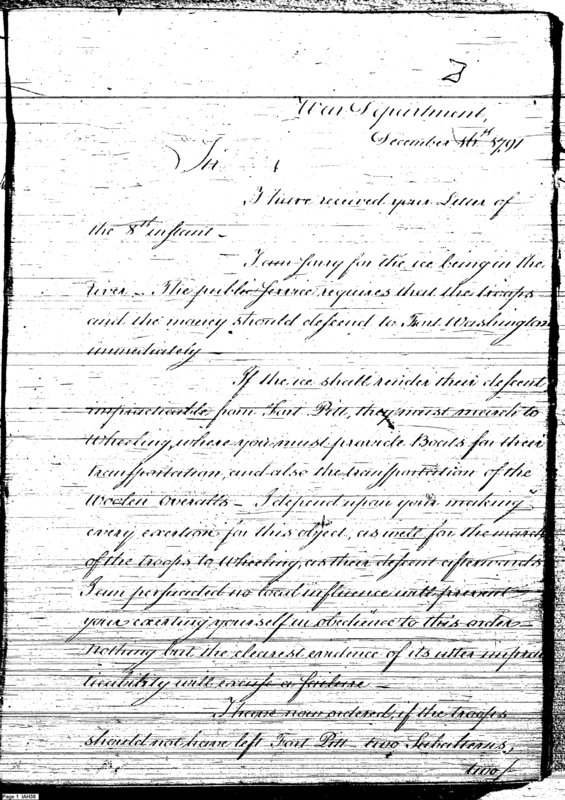 War Department,
December 16th 1791
Sir
I have received your Letter of
the 8th instant —
I am sorry for the ice being in the
river — The public service requires that the troops
and the money should descend to Fort Washington
immediately —
If the ice shall render their descent
impracticable from Fort Pitt, they must march to
Wheeling, where you must provide Boats for their
transportation, and also the transportation of the
Woolen Overalls — I depend upon your making
every exertion for this object, as well for the march
of the troops to Wheeling, as their descent afterwards
I am persuaded no local influence will prevent
your exerting yourself in obedience to this order —
Nothing but the clearest evidence of its utter imprac
ticability will excuse a failure —
I have now ordered, if the troops
should not have left Fort Pitt two Subalterns,
two/
Page 1 IAH38